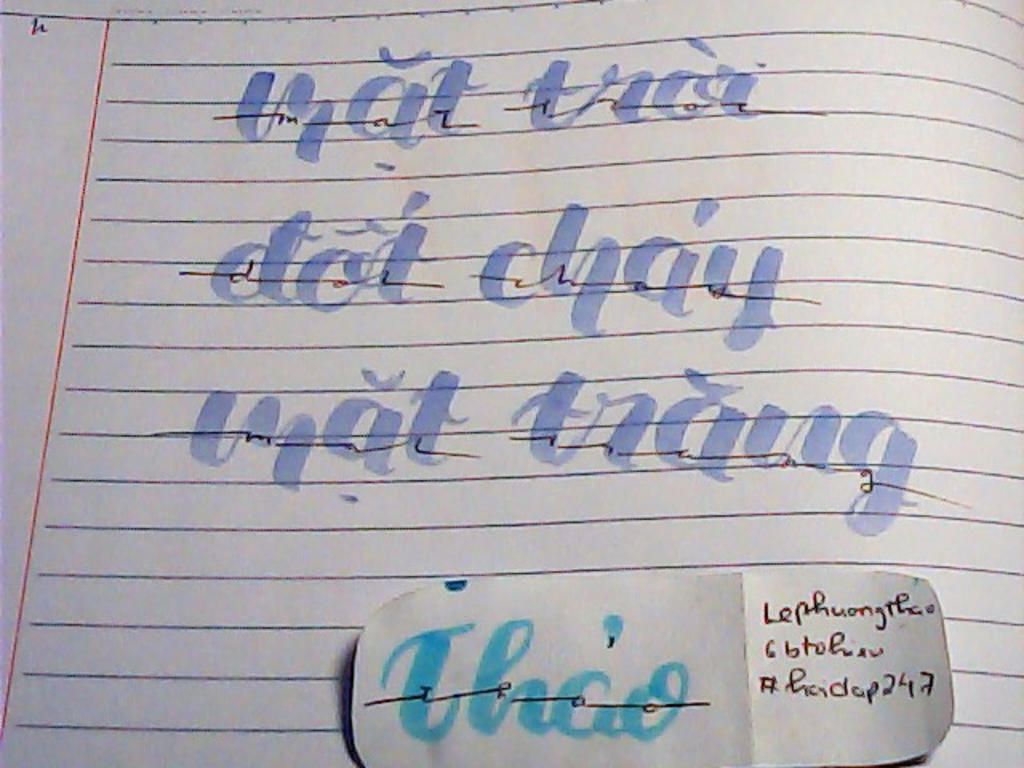 mặt trời
đốt cháy
mặt trăng
Thảo
Lephuongthao
6btohieu
#hoidap247